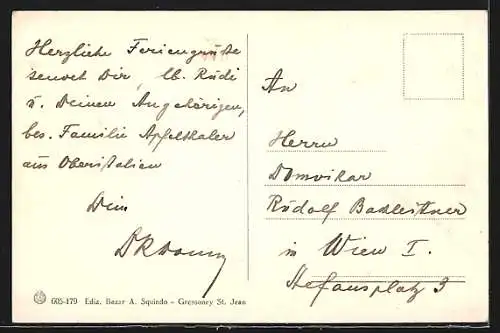 Herzliche Feriengrüsse
sendet Dir, lb. Rudi
u. Deinen Angehörigen,
bes. Familie Apfelthaler
aus Oberitalien
Dein
An
Herrn
Domvikar
Rudolf Bachleitner
in Wien I.
Stefansplatz 3
605-179 Ediz. Bazar A. Squindo - Gressoney St. Jean